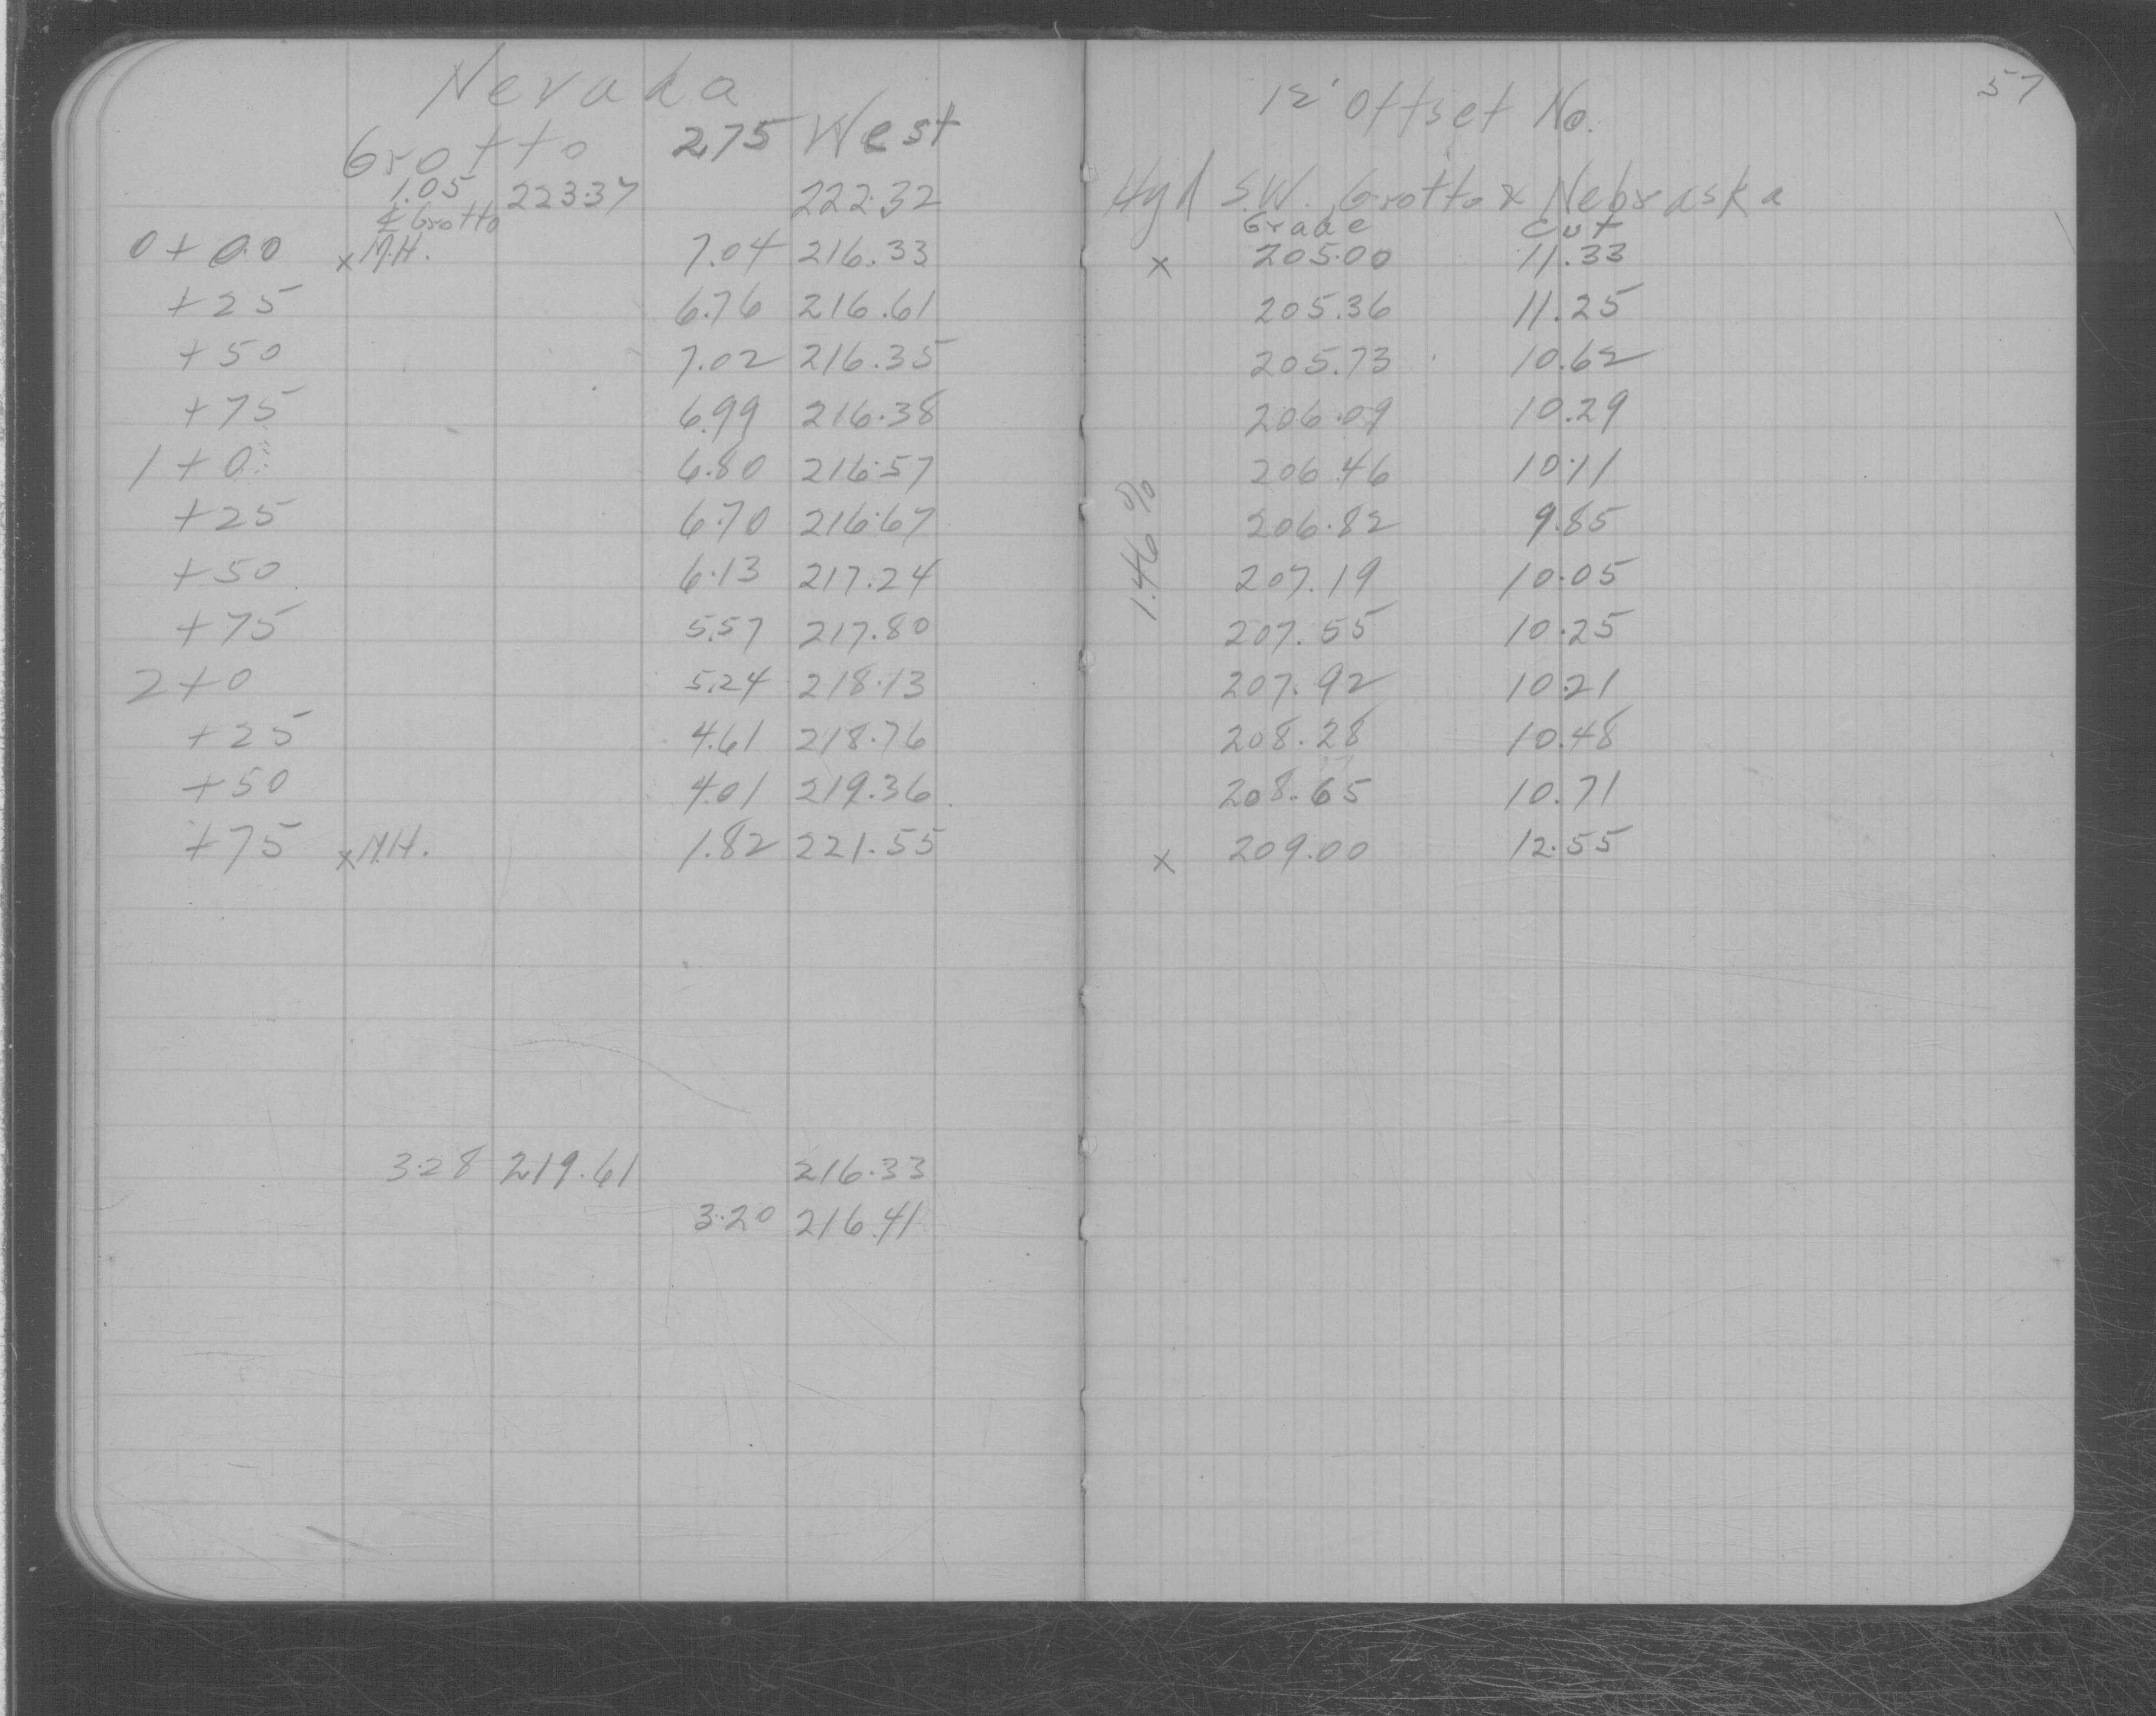 57
Nevada 12' Offset No.
Grotto 275 West
1.05 223.37 222.32 Hyd S.W. Grotto & Nebraska
℄ Grotto Grade Cut
0+00 x M.H. 7.04 216.33 x 205.00 11.33
+25 6.76 216.61 205.36 11.25
+50 7.02 216.35 205.73 10.62
+75 6.99 216.38 206.09 10.29
1+0 6.80 216.57 206.46 10.11
+25 6.70 216.67 206.82 9.85
+50 6.13 217.24 207.19 10.05
1.46%
+75 5.57 217.80 207.55 10.25
2+0 5.24 218.13 207.92 10.21
+25 4.61 218.76 208.28 10.48
+50 4.01 219.36 208.65 10.71
+75 x M.H. 1.82 221.55 x 209.00 12.55
3.28 219.61 216.33
3.20 216.41